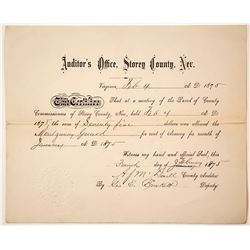 Auditor's Office, Storey County, Nev.
Virginia, Feb 4 A.D. 1875
This Certifies That at a meeting of the Board of County
Commissioners of Storey County, Nev., held Feb 4 A.D.
1875, the sum of Seventy five dollars was allowed the
Montgomery Guard for rent of Armory for month of
January A.D. 1875
Witness my hand and official Seal, this
Fourth day of February 1875
By Deputy